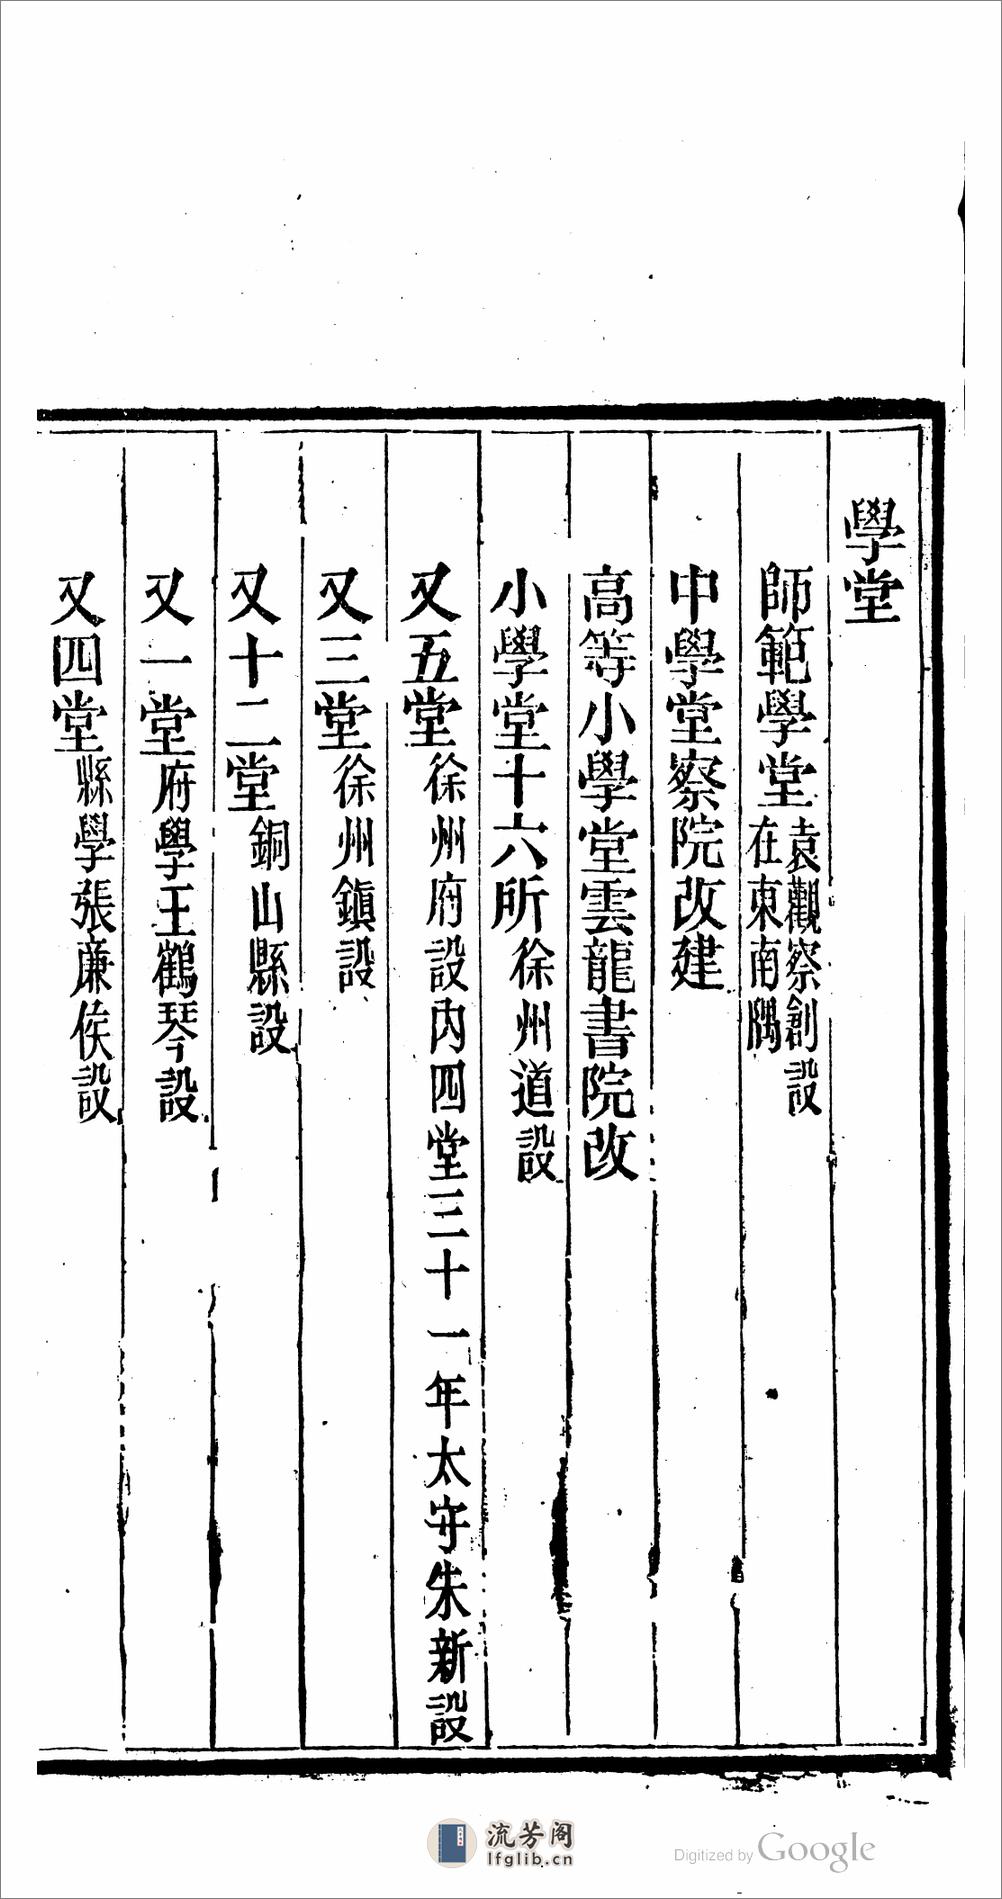 學堂
師範學堂袁觀察創設
在東南隅
中學堂察院改建
高等小學堂雲龍書院改
小學堂十六所徐州道設
又五堂徐州府設內四堂三十一年太守朱新設
又三堂徐州鎮設
又十二堂銅山縣設
又一堂府學王鶴琴設
又四堂縣學張廉俟設
流芳阁
lfglib.cn
Digitized by Google